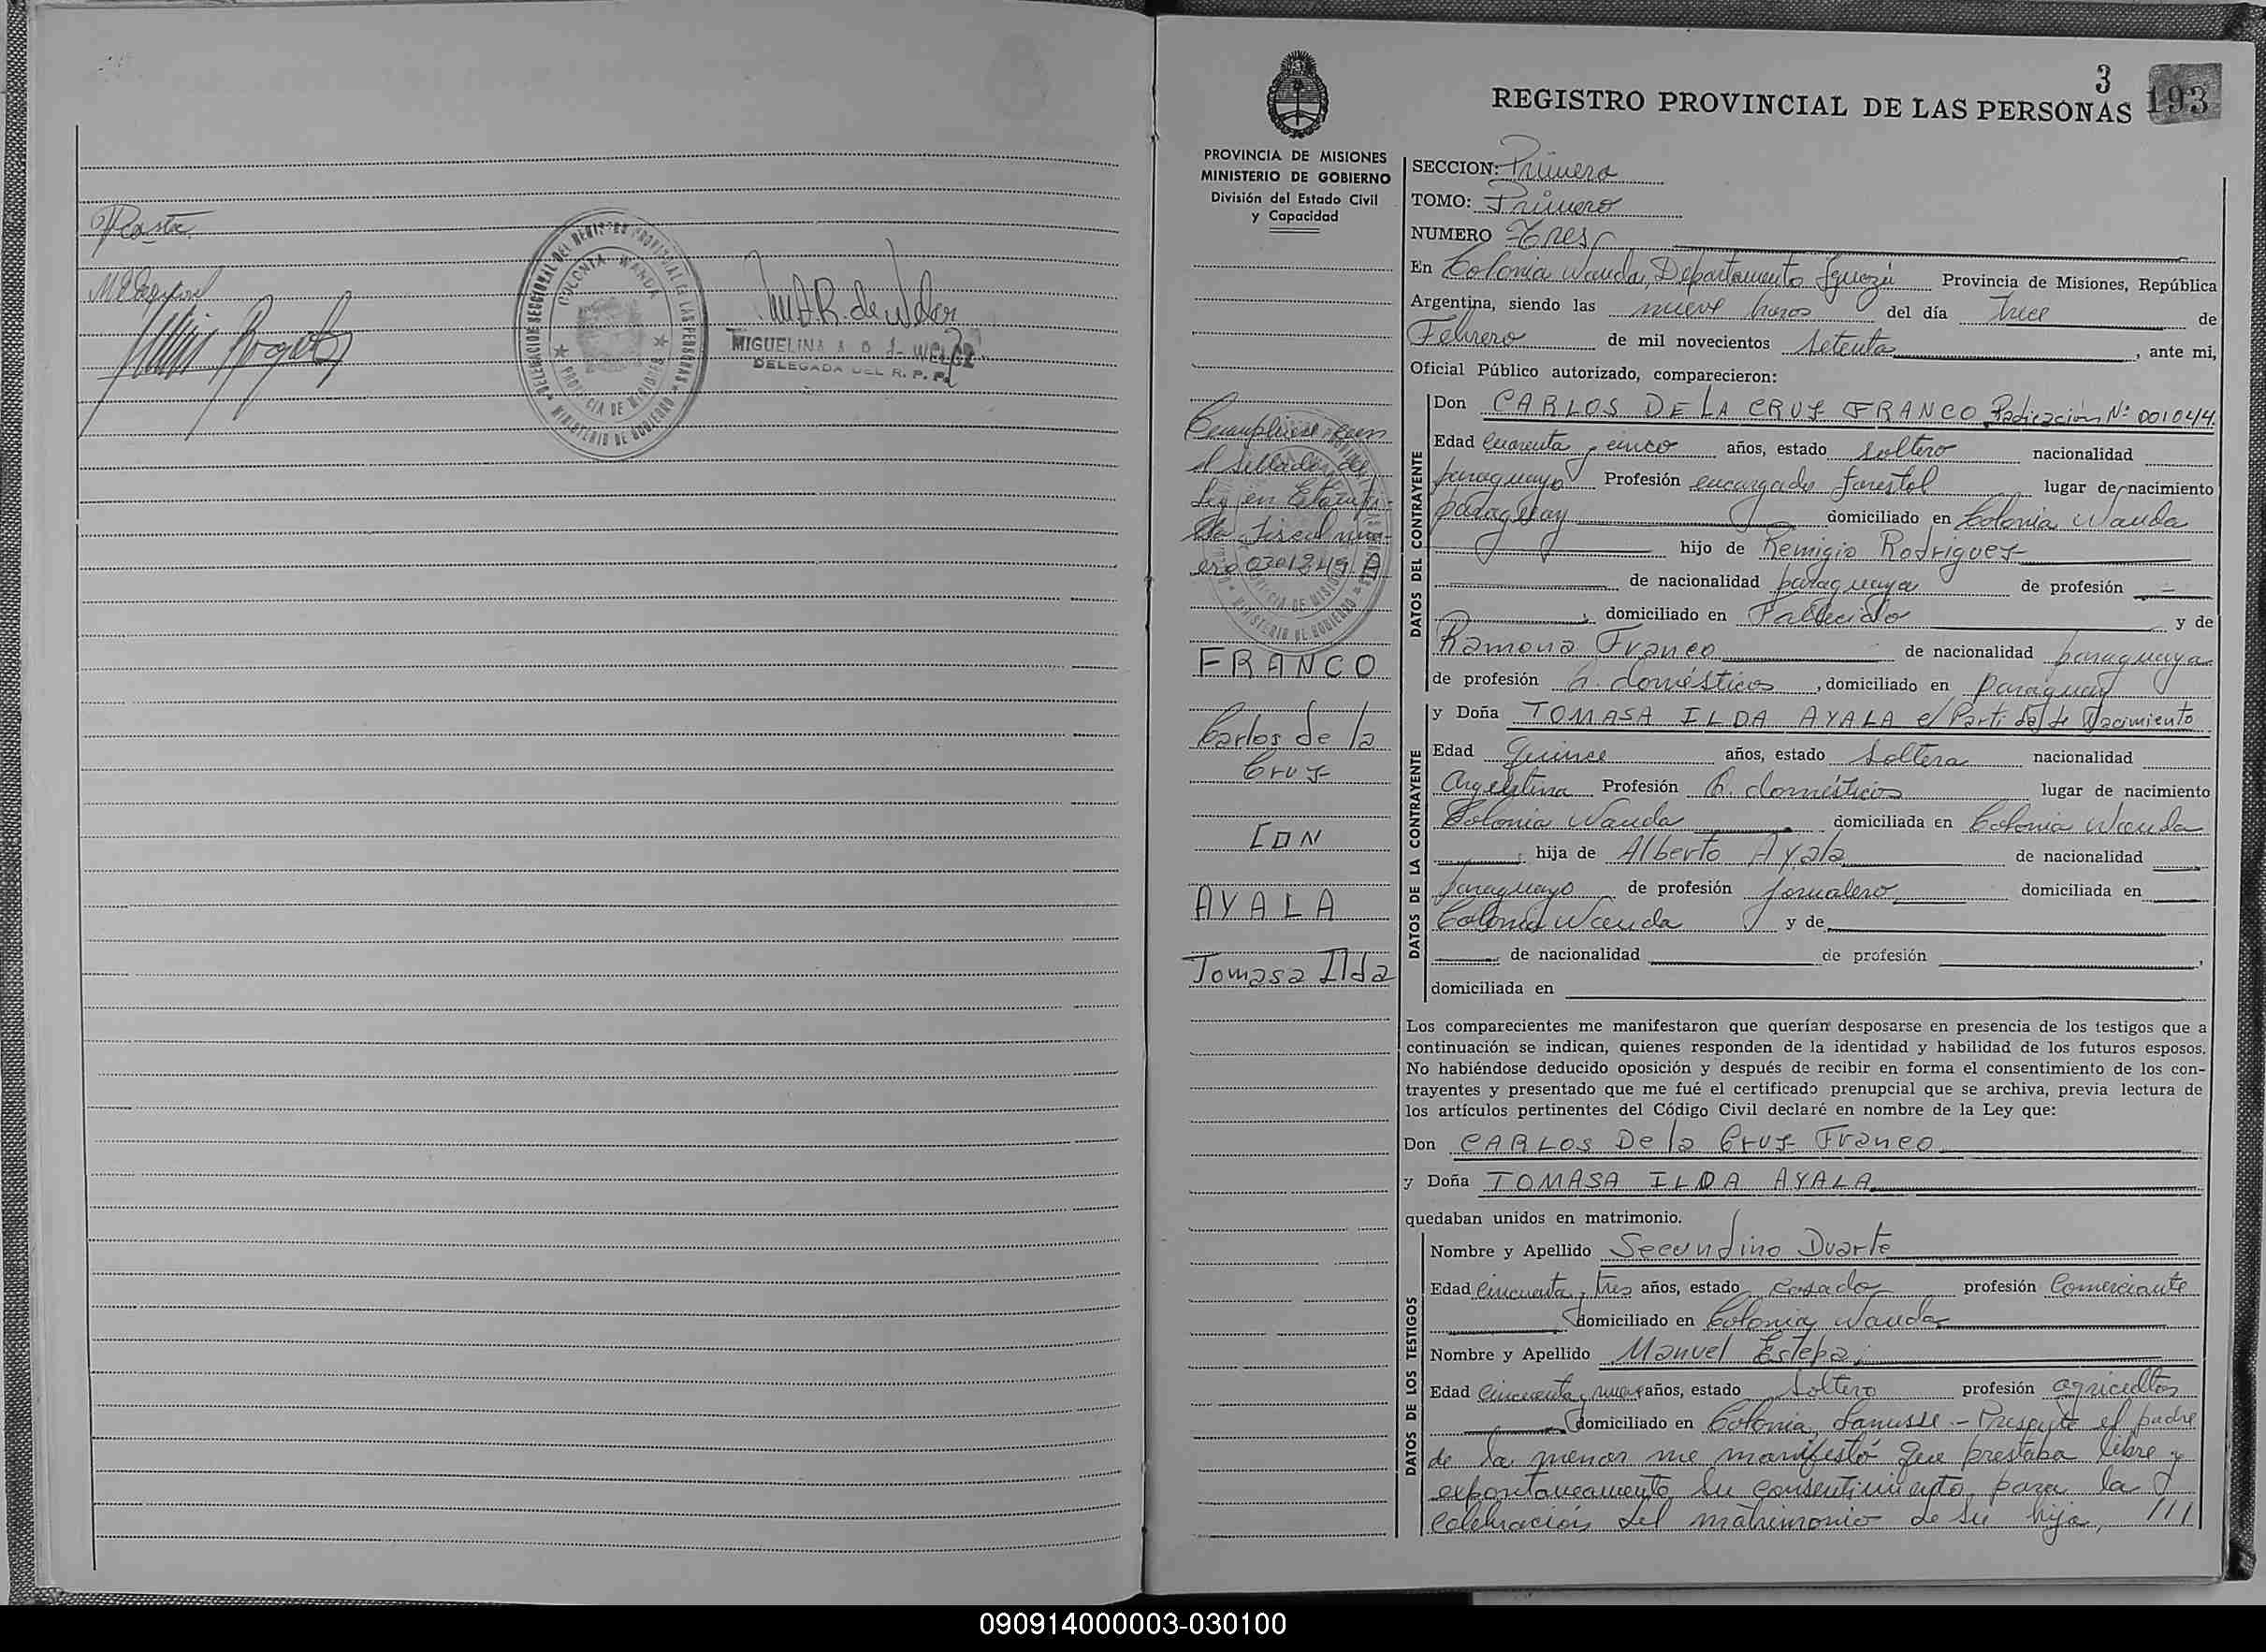 MIGUELINA A D
DELEGADA DEL R. P. P.
DELEGACION SECCIONAL DEL REGISTRO PROVINCIAL DE LAS PERSONAS
MINISTERIO DE GOBIERNO
COLONIA WANDA
PROVINCIA DE MISIONES
3
REGISTRO PROVINCIAL DE LAS PERSONAS 193
PROVINCIA DE MISIONES
MINISTERIO DE GOBIERNO
División del Estado Civil
y Capacidad
Cumpliose con
el sellado de
ley en
Fiscal nume-
ero 0301249 A
FRANCO
Carlos de la
Cruz
CON
AYALA
Tomasa Ilda
SECCION: Primera
TOMO: Primero
NUMERO Tres
En Colonia Wanda, Departamento Iguazú Provincia de Misiones, República
Argentina, siendo las nueve horas del día trece de
Febrero de mil novecientos setenta, ante mi,
Oficial Público autorizado, comparecieron:
DATOS DEL CONTRAYENTE
Don CARLOS DE LA CRUZ FRANCO Radicación Nº 001044.
Edad Cuarenta y cinco años, estado soltero nacionalidad
paraguayo Profesión encargado forestal lugar de nacimiento
paraguay domiciliado en Colonia Wanda
hijo de Remigio Rodriguez
de nacionalidad paraguaya de profesión -
, domiciliado en Fallecido y de
Ramona Franco de nacionalidad paraguaya
de profesión q. domésticos, domiciliado en Paraguay
DATOS DE LA CONTRAYENTE
y Doña TOMASA ILDA AYALA c/ Partida de Nacimiento
Edad Quince años, estado Soltera nacionalidad
Argentina Profesión q. domésticos lugar de nacimiento
Colonia Wanda domiciliada en Colonia Wanda
hija de Alberto Ayala de nacionalidad
paraguayo de profesión jornalero domiciliada en
Colonia Wanda y de
de nacionalidad de profesión ,
domiciliada en
Los comparecientes me manifestaron que querían desposarse en presencia de los testigos que a
continuación se indican, quienes responden de la identidad y habilidad de los futuros esposos.
No habiéndose deducido oposición y después de recibir en forma el consentimiento de los con-
trayentes y presentado que me fué el certificado prenupcial que se archiva, previa lectura de
los artículos pertinentes del Código Civil declaré en nombre de la Ley que:
Don CARLOS De la Cruz Franco
y Doña TOMASA ILDA AYALA
quedaban unidos en matrimonio.
DATOS DE LOS TESTIGOS
Nombre y Apellido Secundino Duarte
Edad Cincuenta y tres años, estado Casado profesión Comerciante
domiciliado en Colonia Wanda
Nombre y Apellido Manuel Estepa
Edad Cincuenta y nueve años, estado soltero profesión agricultor
domiciliado en Colonia Lanusse.- Presente el padre
de la menor me manifestó que prestaba libre y
expontaneamente su consentimiento para la
celebración del matrimonio de su hija, ///
090914000003-030100